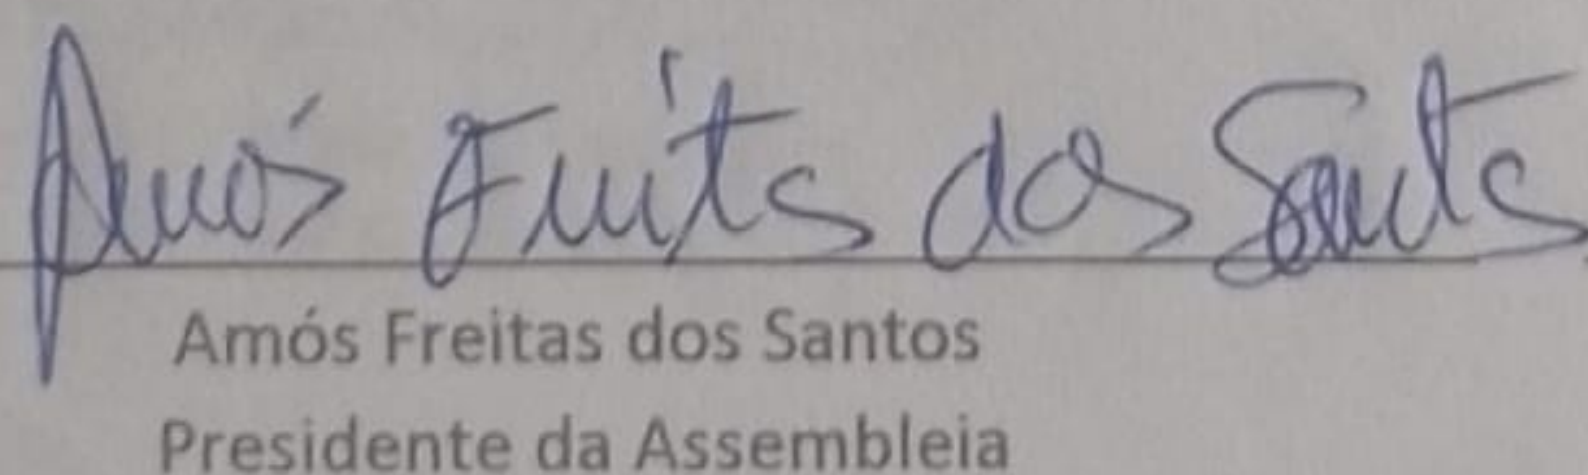 Amós Freitas dos Santos
Amós Freitas dos Santos
Presidente da Assembleia